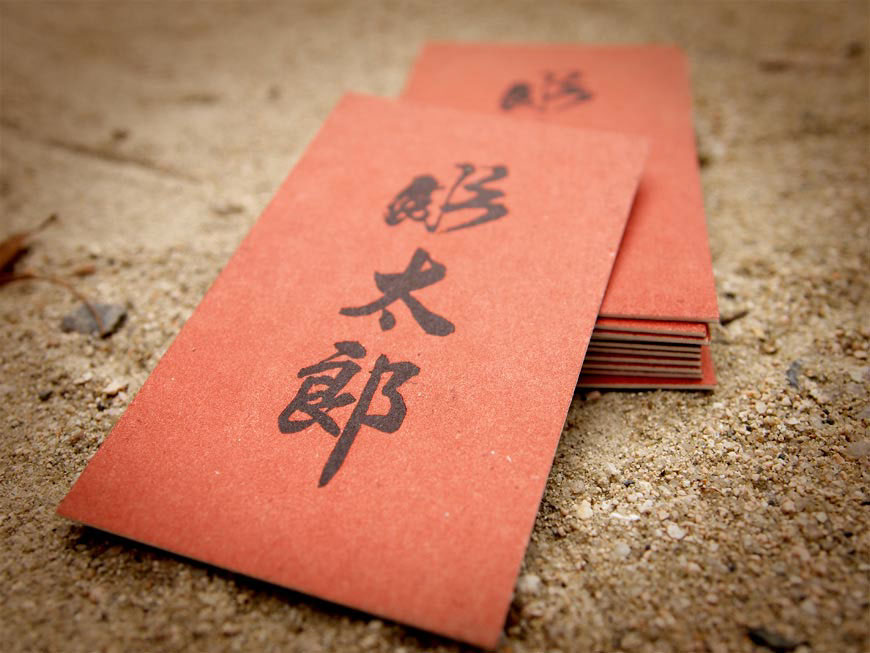 彫太郎
彫